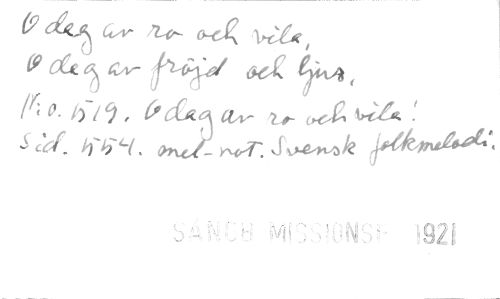 O dag av ro och vila,
O dag av fröjd och ljus,
N:o. 1519. O dag av ro och vila!
Sid. 554. mel-not. Svensk folkmelodi.
SÅNGB MISSIONSF 1921